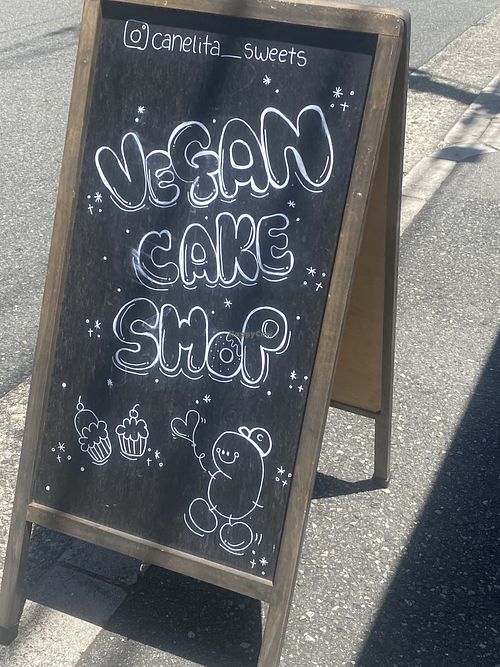 canelita_sweets
VeGAN
CAKE
SHOP
HappyCow